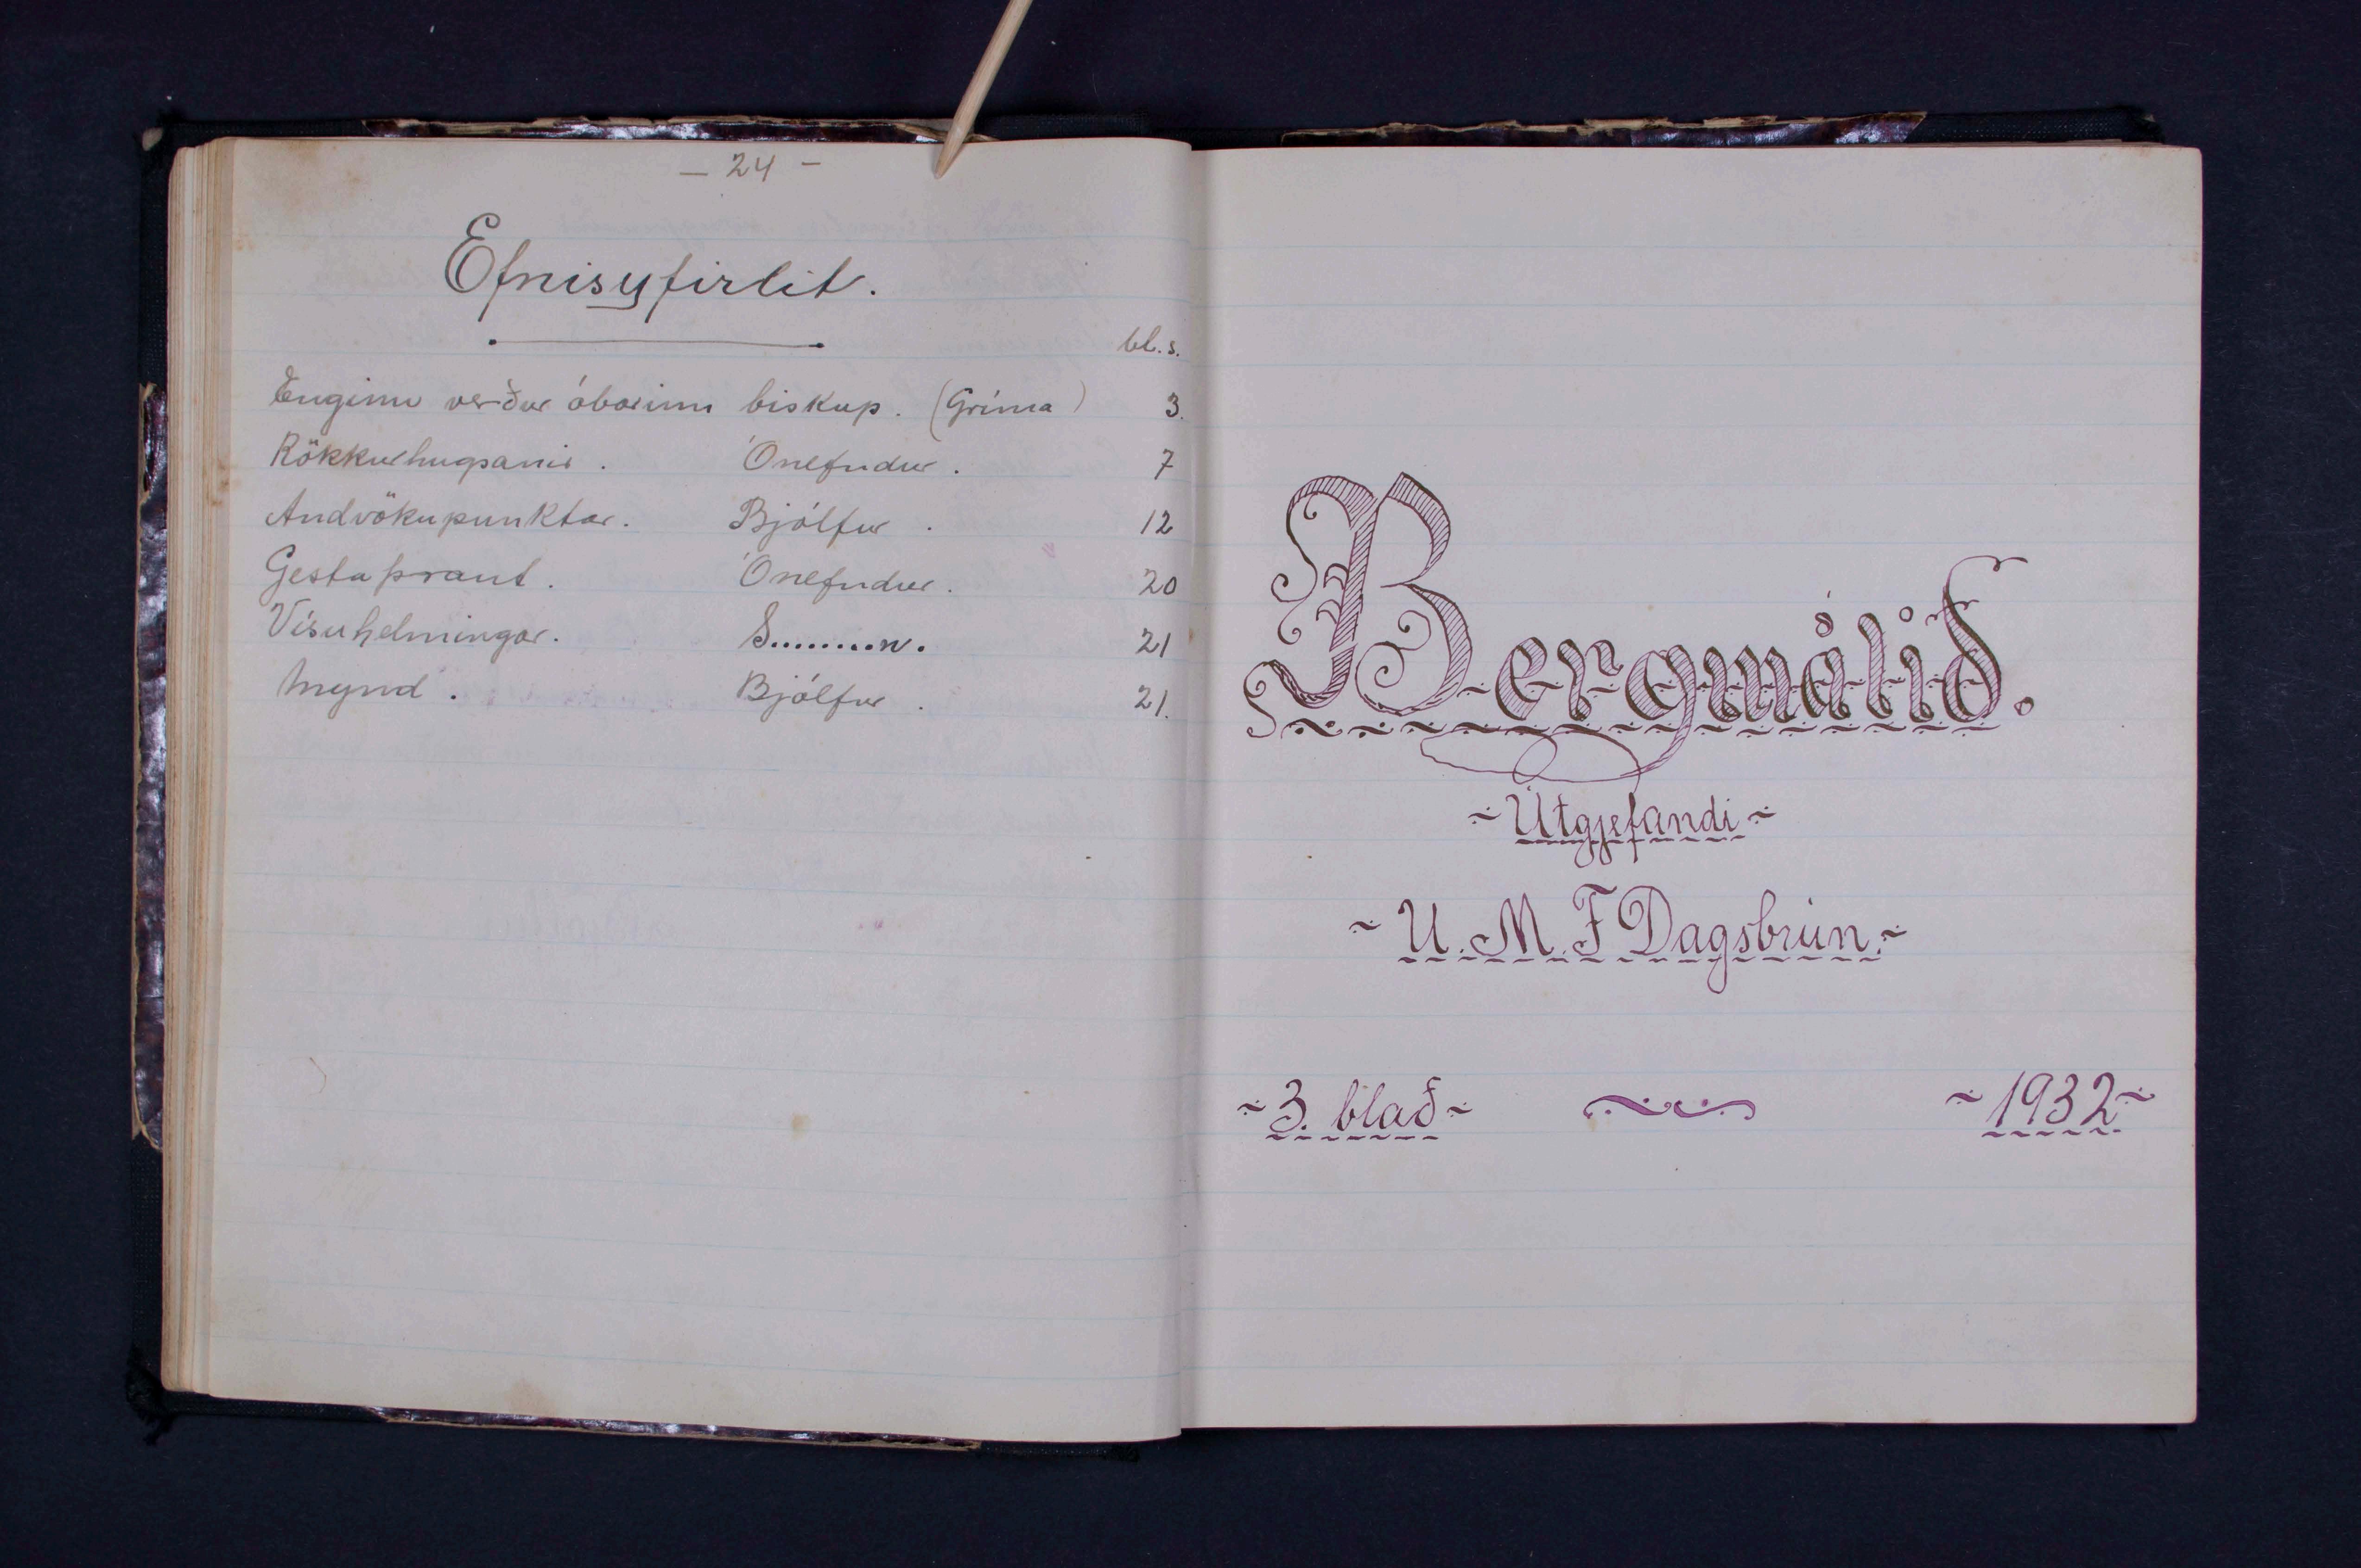 — 24 —
Efnisyfirlit.
bl.s.
Enginn verður óbarinn biskup. (Gríma) 3.
Rökkurhugsanir. Ónefndur. 7
Andvökupunktar. Bjólfur. 12
Gestaþraut. Ónefndur. 20
Vísuhelmingar. S.........n. 21
Mynd. Bjólfur. 21.
Bergmálið.
~ Útgjefandi ~
~ U. M. F Dagsbrún. ~
~ 3. blað ~ ~ 1932 ~